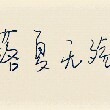 落夏无殇